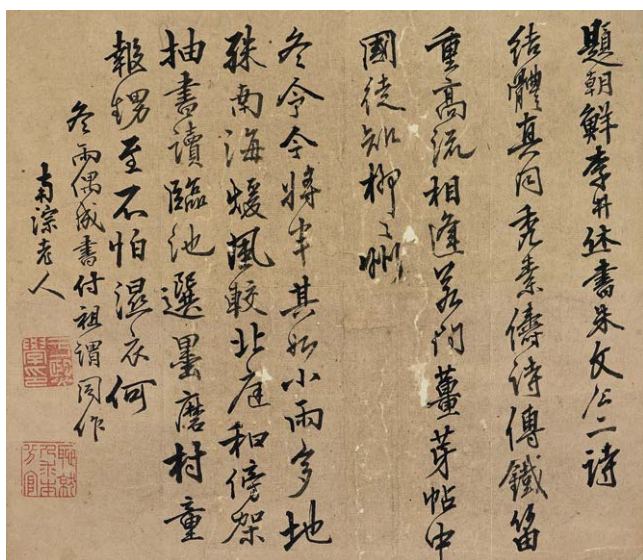 題朝鮮李井休書朱文公二詩
結體真同秃素儔詩傳鐵笛
重高流相逢若問薑芽帖中
國徒知柳〻州
冬令今將半其如小雨多地
殊南海煖風較北庭和傍架
抽書讀臨池選墨磨村童
報甥至不怕濕衣何
冬雨偶成書付祖謂同作
南淙老人